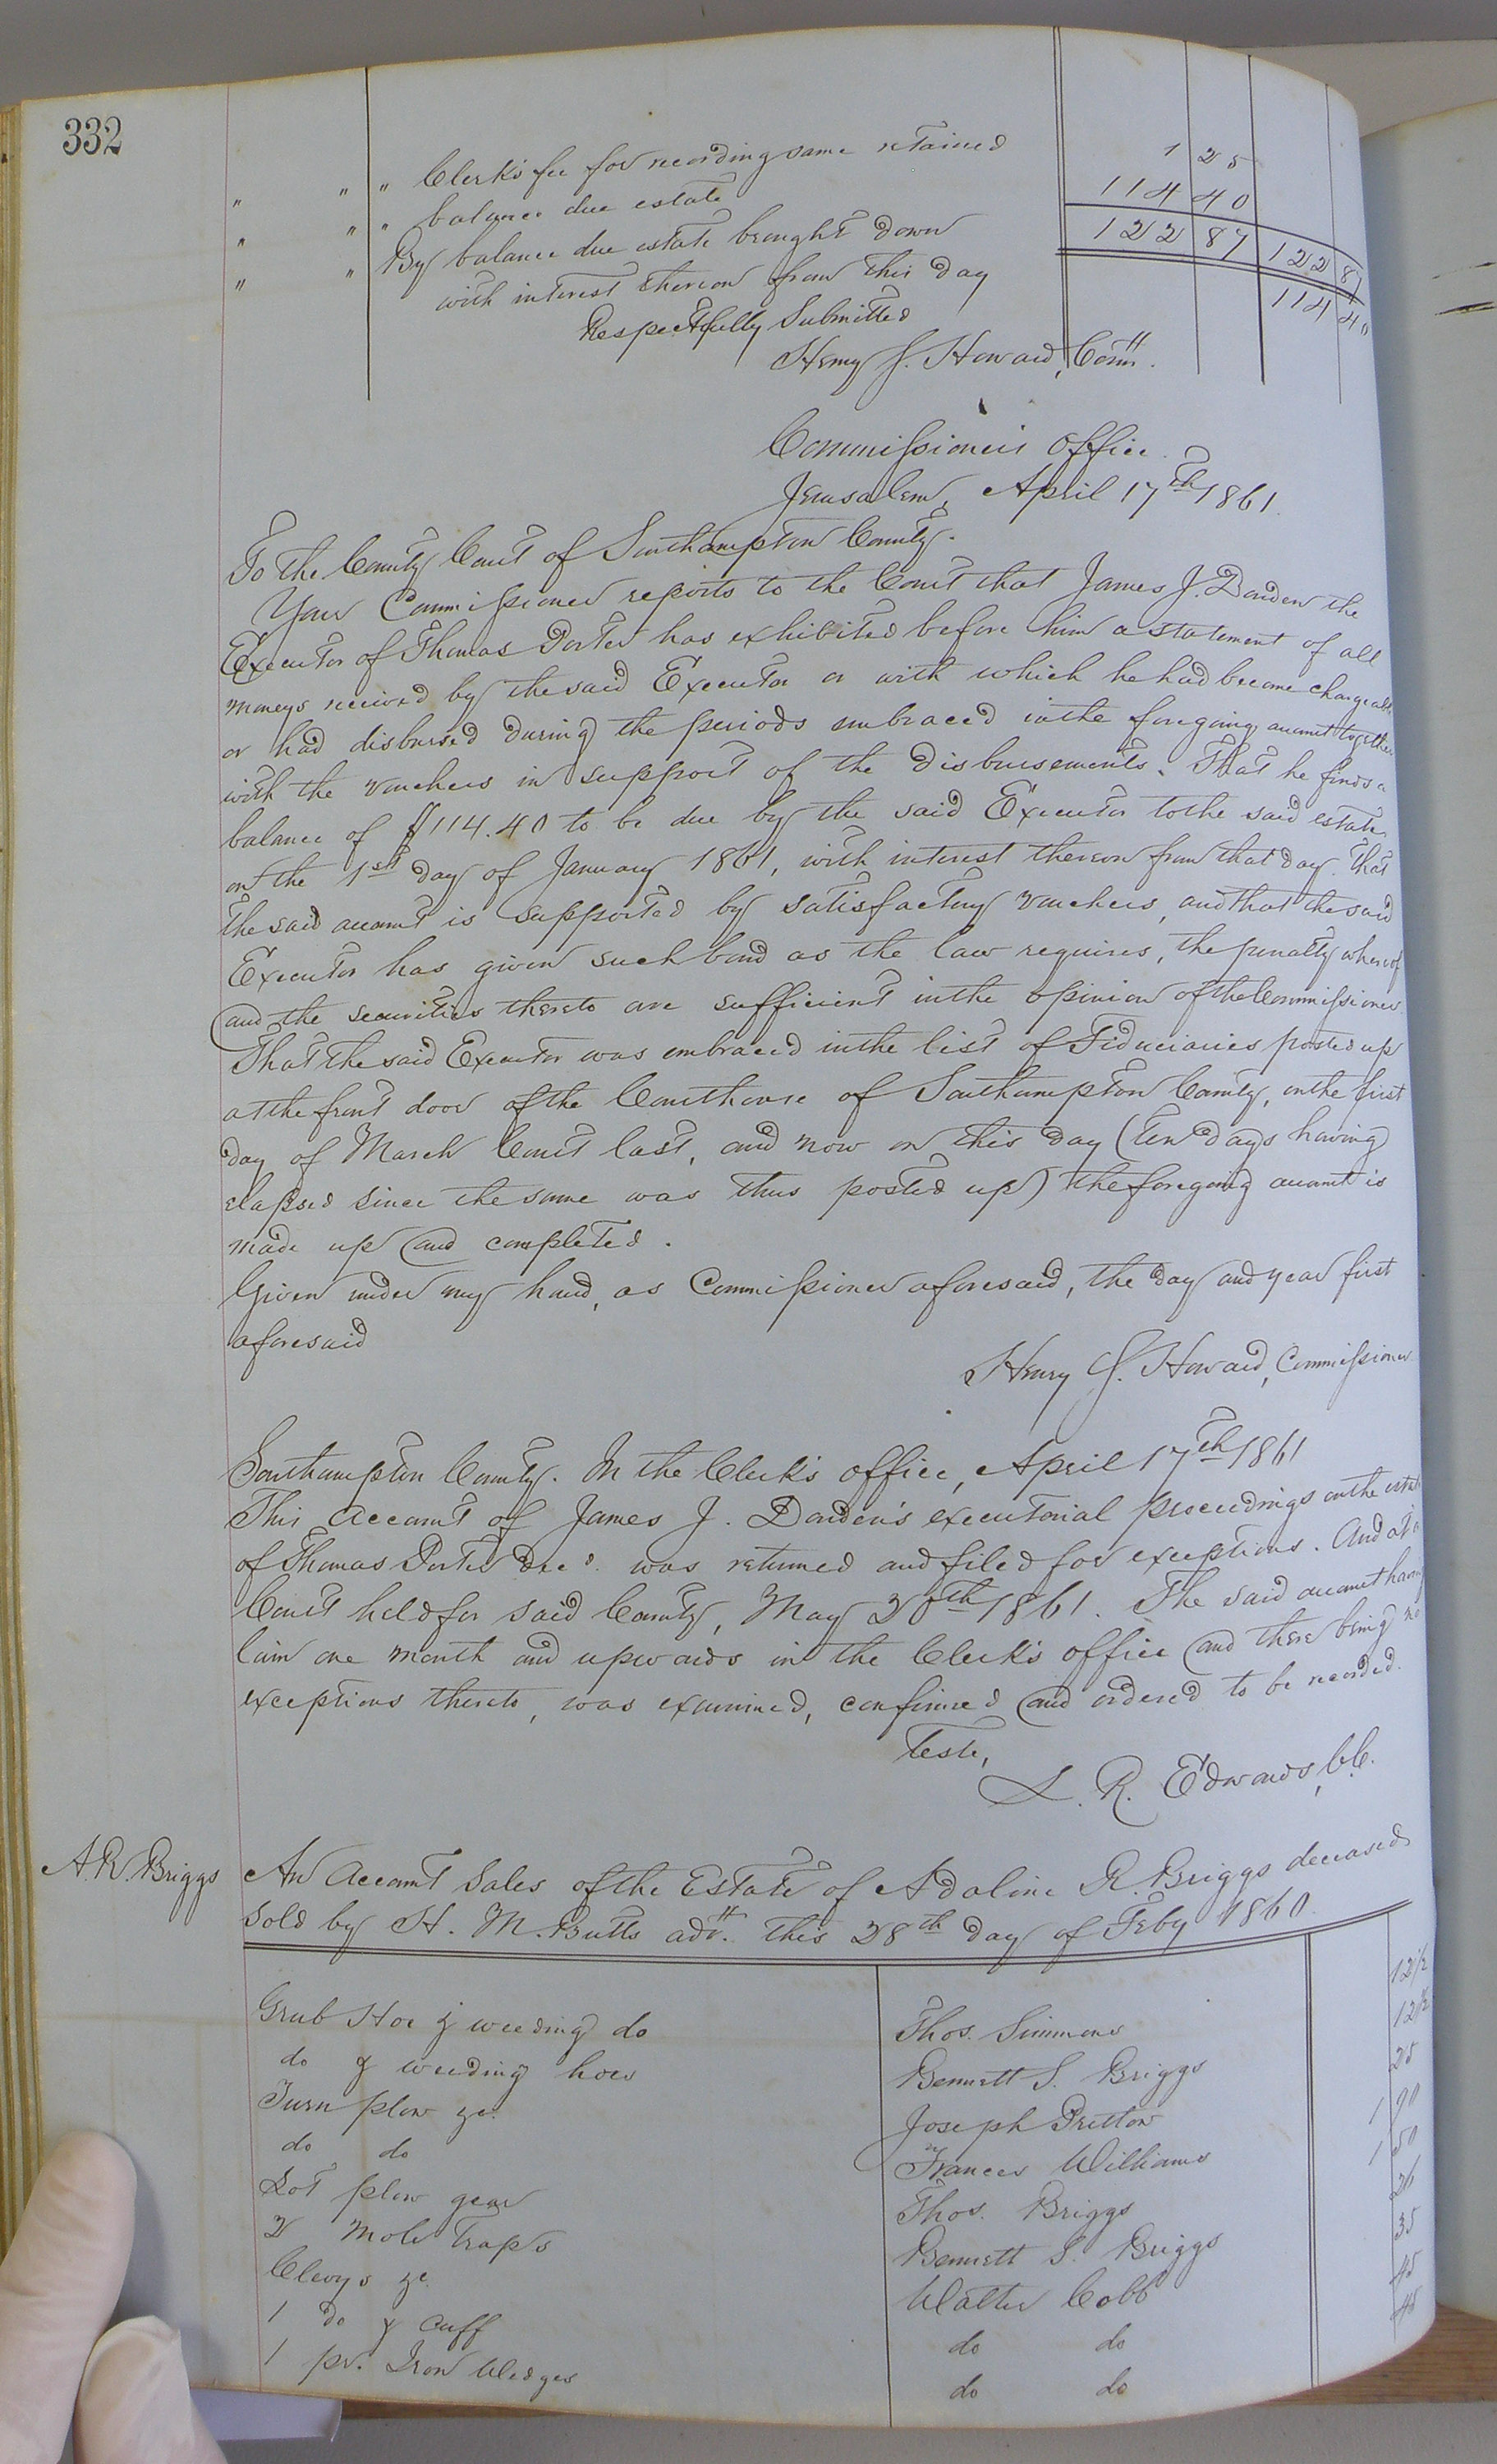 332
" " " Clerk's fee for recording same retained 1 25
" " " balance due estate 114 40
122 87 122 87
" " By balance due estate brought down 114 40
with interest thereon from this day
Respectfully Submitted
Henry J. Howard, Comr.
Commissioner's Office.
Jerusalem, April 17th 1861.
To the County Court of Southampton County.
Your Commissioner reports to the Court that James J. Darden the
Executor of Thomas Porter has exhibited before him a statement of all
moneys received by the said Executor or with which he had become chargeable
or had disbursed during the periods embraced in the foregoing account together
with the vouchers in support of the disbursements. That he finds a
balance of $114.40 to be due by the said Executor to the said estate
on the 1st day of January 1861, with interest thereon from that day. That
the said account is supported by satisfactory vouchers, and that the said
Executor has given such bond as the law requires, the penalty whereof
and the securities thereto are sufficient in the opinion of the Commissioner.
That the said Executor was embraced in the list of Fiduciaries posted up
at the front door of the Courthouse of Southampton County, on the first
day of March Court last, and now on this day (ten days having
elapsed since the same was thus posted up) the foregoing account is
made up and completed.
Given under my hand, as Commissioner aforesaid, the day and year first
aforesaid
Henry J. Howard, Commissioner
Southampton County. In the Clerk's office, April 17th 1861
This account of James J. Darden's executorial proceedings on the estate
of Thomas Porter decd. was returned and filed for exceptions. And at a
Court held for said County, May 20th 1861. The said account having
lain one month and upwards in the Clerk's office and there being no
exceptions thereto, was examined, confirmed and ordered to be recorded.
Teste,
L. R. Edwards, C.C.
A. R. Briggs
An Account Sales of the Estate of Adaline R. Briggs deceased
Sold by H. M. Butts adr. this 28th day of Feby 1860.
Grub Hoe & weeding do Thos. Simmons 12½
do & weeding hoes Bennett S. Briggs 12½
Turn plow &c. Joseph Pretlow 25
do do Frances Williams 1 90
Lot plow gear Thos. Briggs 1 50
2 Mole Traps Bennett S. Briggs 26
Clevys &c Walter Cobb 35
1 do & Cuff do do 45
1 pr. Iron Wedges do do